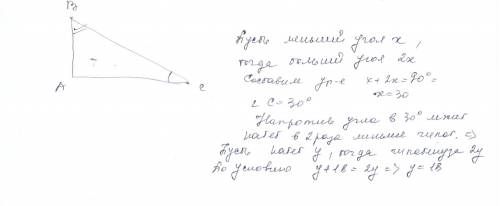 B
A
C
Пусть меньший угол x,
тогда больший угол 2x
Составим ур-е x + 2x = 90° =
x = 30
∠ C = 30°
Напротив угла в 30° лежит
катет в 2 раза меньше гипот. =>
Пусть катет y, тогда гипотенуза 2y
По условию y + 18 = 2y => y = 18